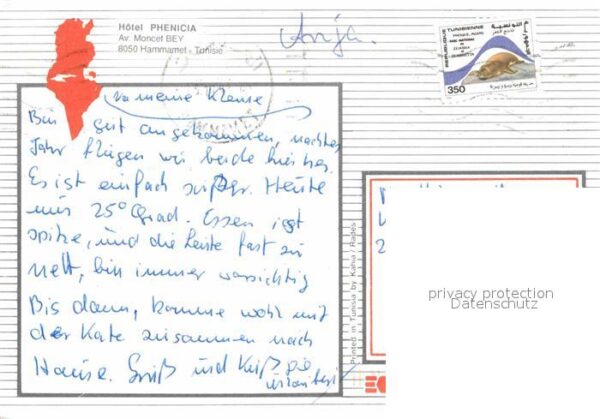 Hôtel PHENICIA
Av. Moncef BEY
8050 Hammamet - Tunisie
Anja.
REPUBLIQUE TUNISIENNE
350
na meine Kleine
Bin gut angekommen, nächstes
Jahr fliegen wir beide hierher.
Es ist einfach super. Heute
nur 25° Grad. Essen ist
spitze, und die Leute fast zu
nett, bin immer vorsichtig
Bis dann, komme wohl mit
der Karte zusammen nach
Hause. Gruß und Kuß
Printed in Tunisia by Kahia / Rades
privacy protection
Datenschutz